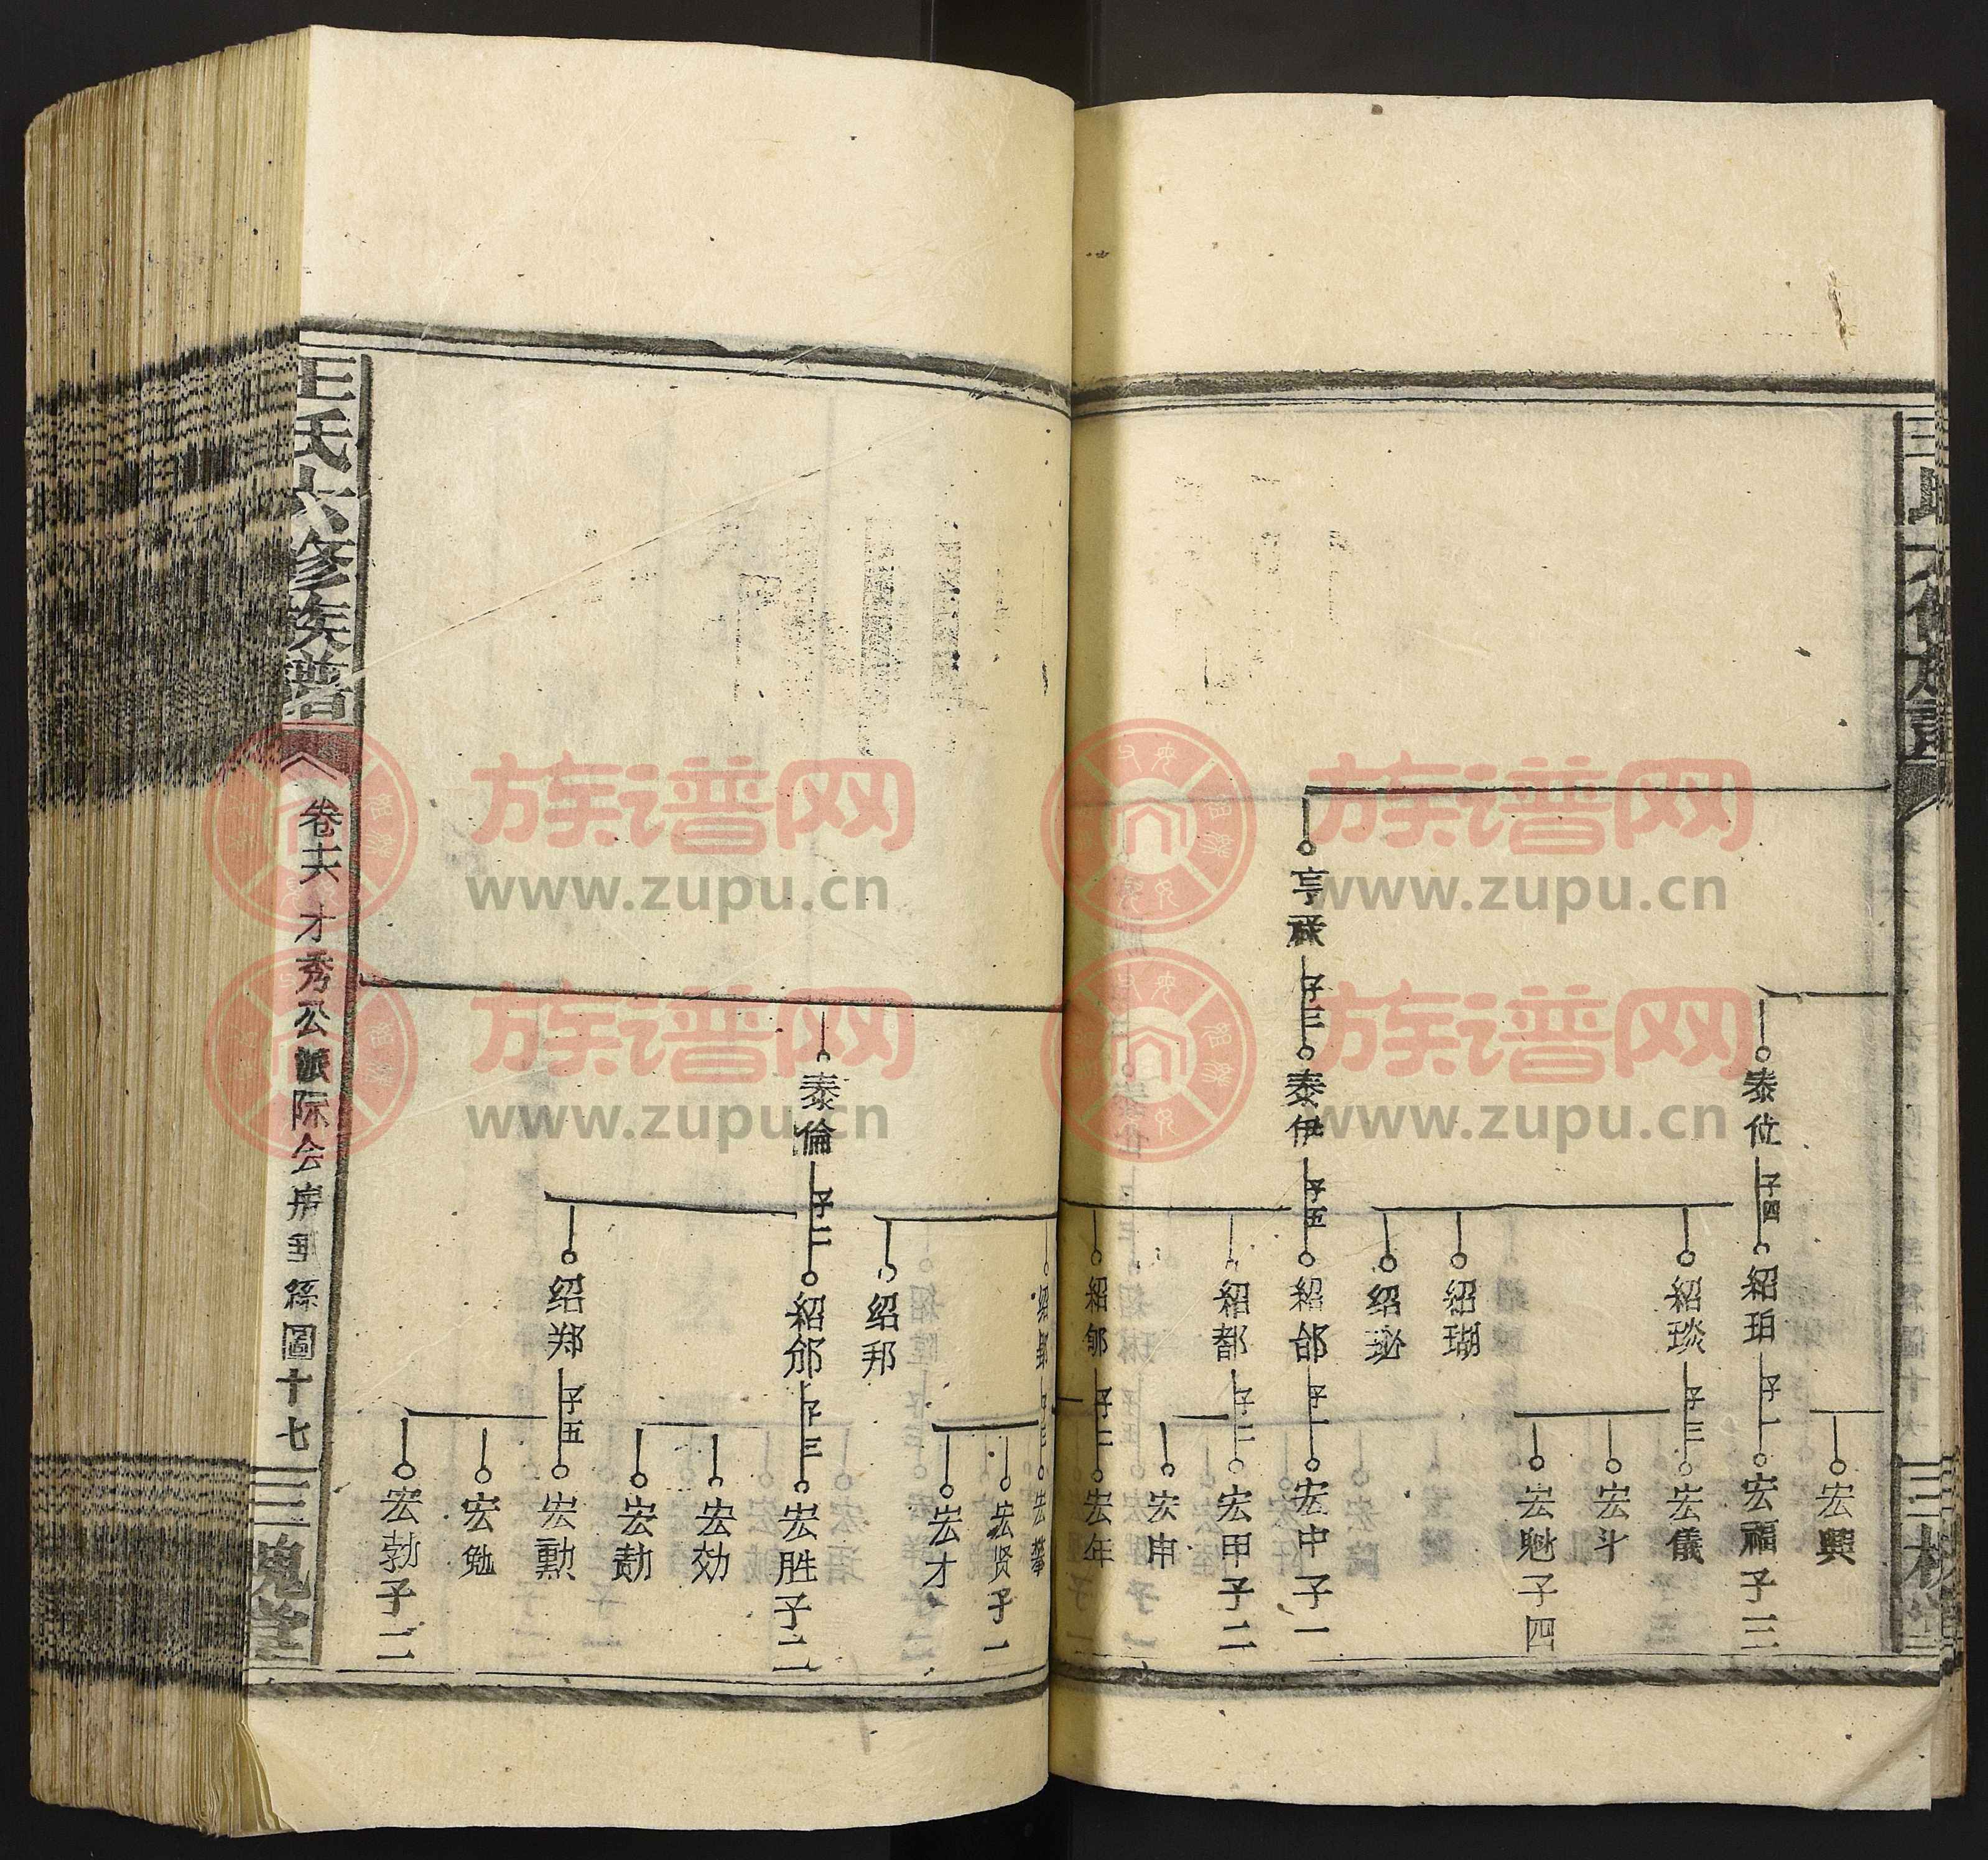 亨
子三
泰位
子四
紹珀
子一
宏福子三
宏興
紹琰
子三
宏儀
宏斗
宏魁子四
紹瑚
绍珌
泰伊
子五
紹邰
子一
宏中子一
紹都
子二
宏甲子二
宏申
紹邹
子二
宏年
宏攀
宏贤子一
宏才
绍邦
泰倫
子二
紹邠
子三
宏胜子二
宏効
宏勣
绍郑
子五
宏勳
宏勉
宏勃子二
王氏六修族譜
卷六 才秀公派际会房 系圖十七
三槐堂
族谱网
www.zupu.cn
族谱网
www.zupu.cn
族谱网
www.zupu.cn
族谱网
www.zupu.cn